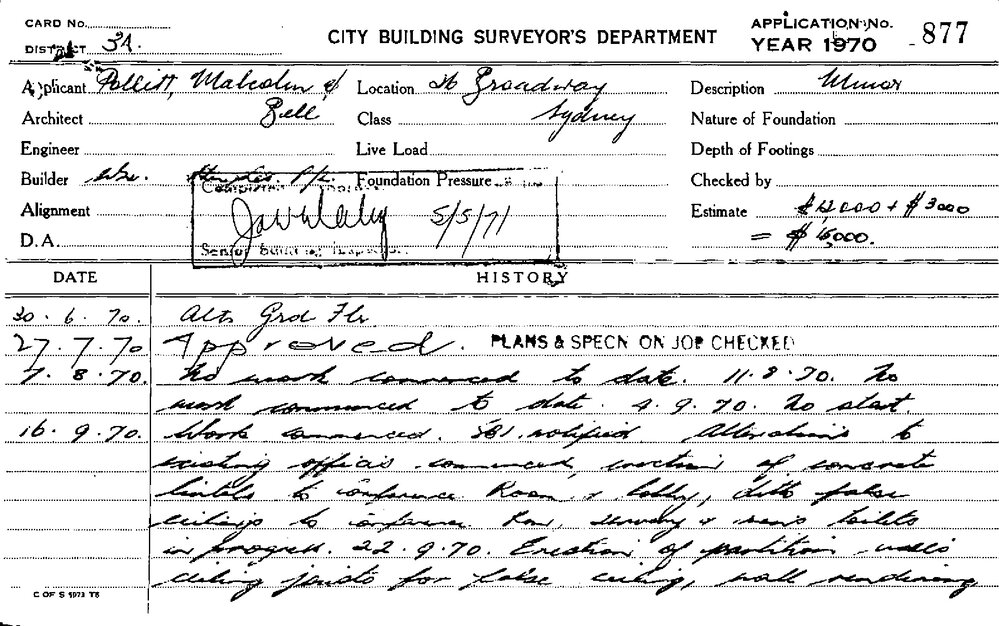 CARD No.
DISTRICT 3A.
CITY BUILDING SURVEYOR'S DEPARTMENT
APPLICATION No. 877
YEAR 1970
Applicant Pollitt, Malcolm &
Bell
Location Broadway
Sydney
Description Minor
Architect
Class
Nature of Foundation
Engineer
Live Load
Depth of Footings
Builder
Foundation Pressure
Checked by
Alignment
5/5/71
Estimate $12000 + $3000
D.A.
= $15,000.
Senior Building Inspector
DATE
HISTORY
30.6.70. Alts Grd Flr.
27.7.70 Approved. PLANS & SPECN ON JOB CHECKED
7.8.70. No work commenced to date. 11.8.70. No
work commenced to date. 4.9.70. No start.
16.9.70. Work commenced. notified. Alterations to
existing offices commenced, erection of concrete
lintels to conference Room & lobby, ditto false
ceilings to conference Rm, & men's toilets
in progress. 22.9.70. Erection of partition walls
ceiling joists for false ceiling, wall rendering
C OF S 1973 T6